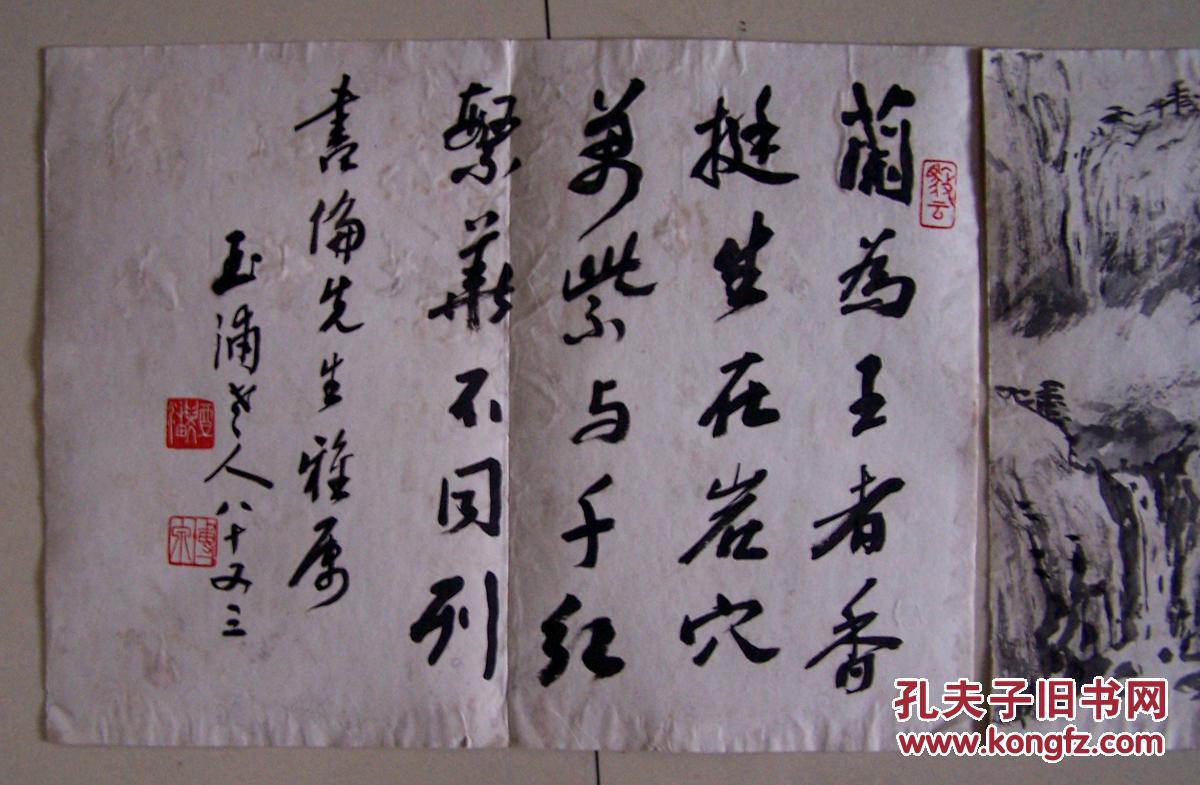 蘭為王者香
挺生在岩穴
萬紫与千红
繁華不同列
書倫先生雅属
玉浦老人八十又三
孔夫子旧书网
www.kongfz.com